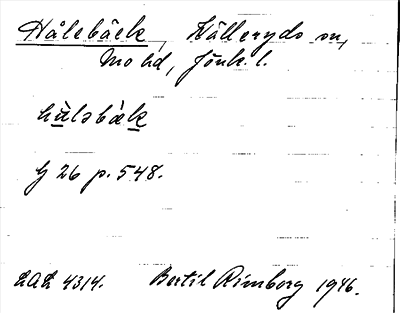 Hålebäck, Källeryds sn,
Mo hd, Jönk. l.
hùlsbàk
G 26 p. 548.
LAL 4314. Bertil Rimborg 1946.